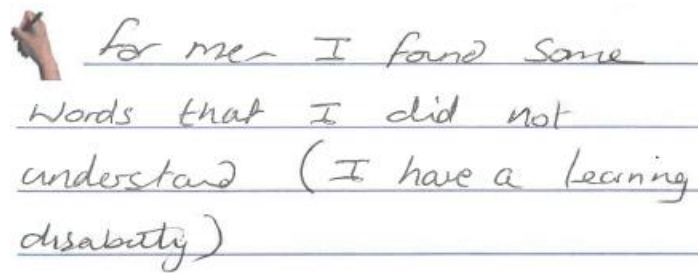 for me - I found some
words that I did not
understand (I have a learning
disability)